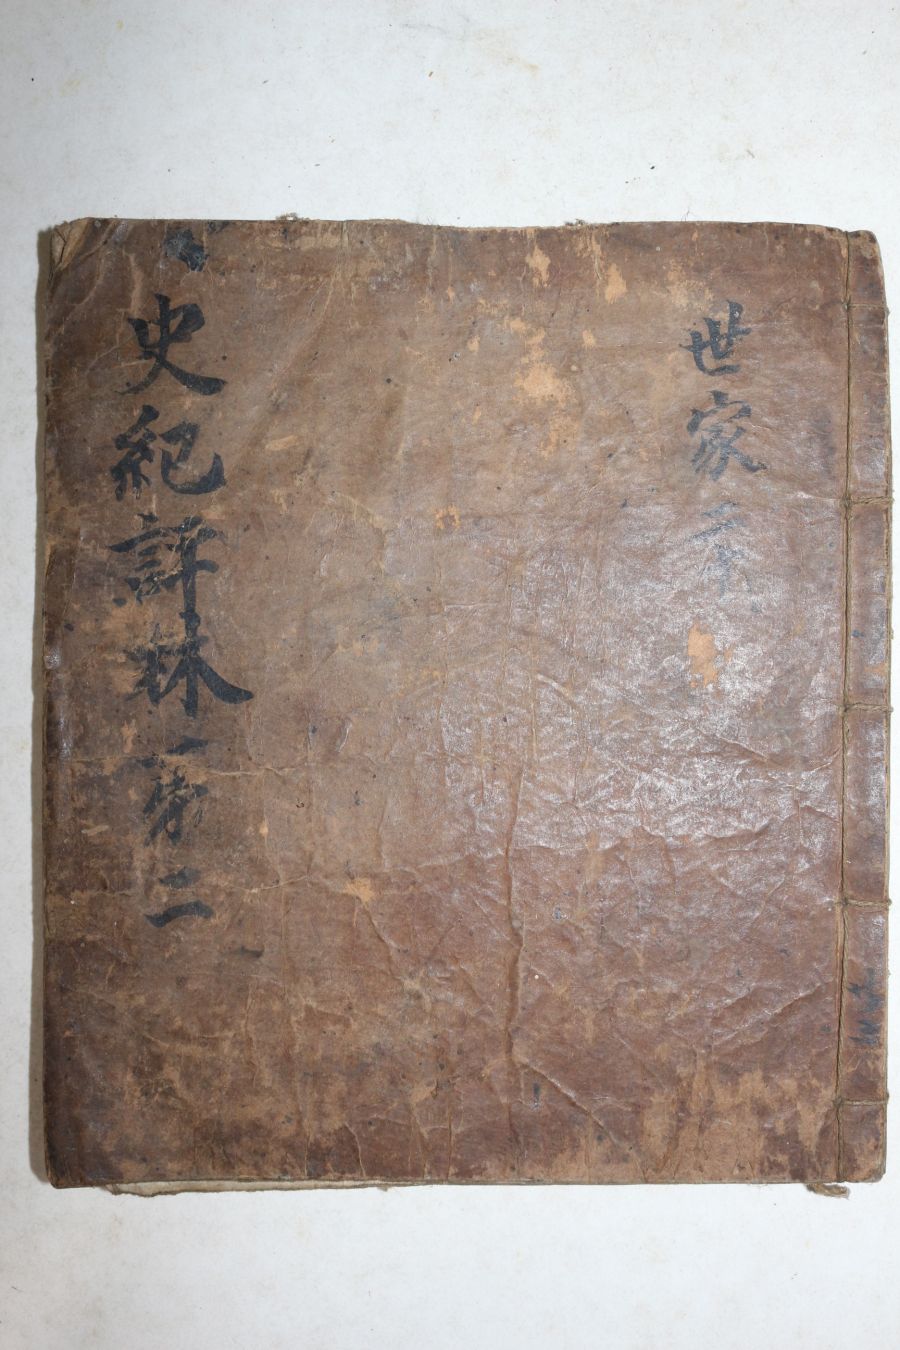 世家 二十
史紀評林 第二